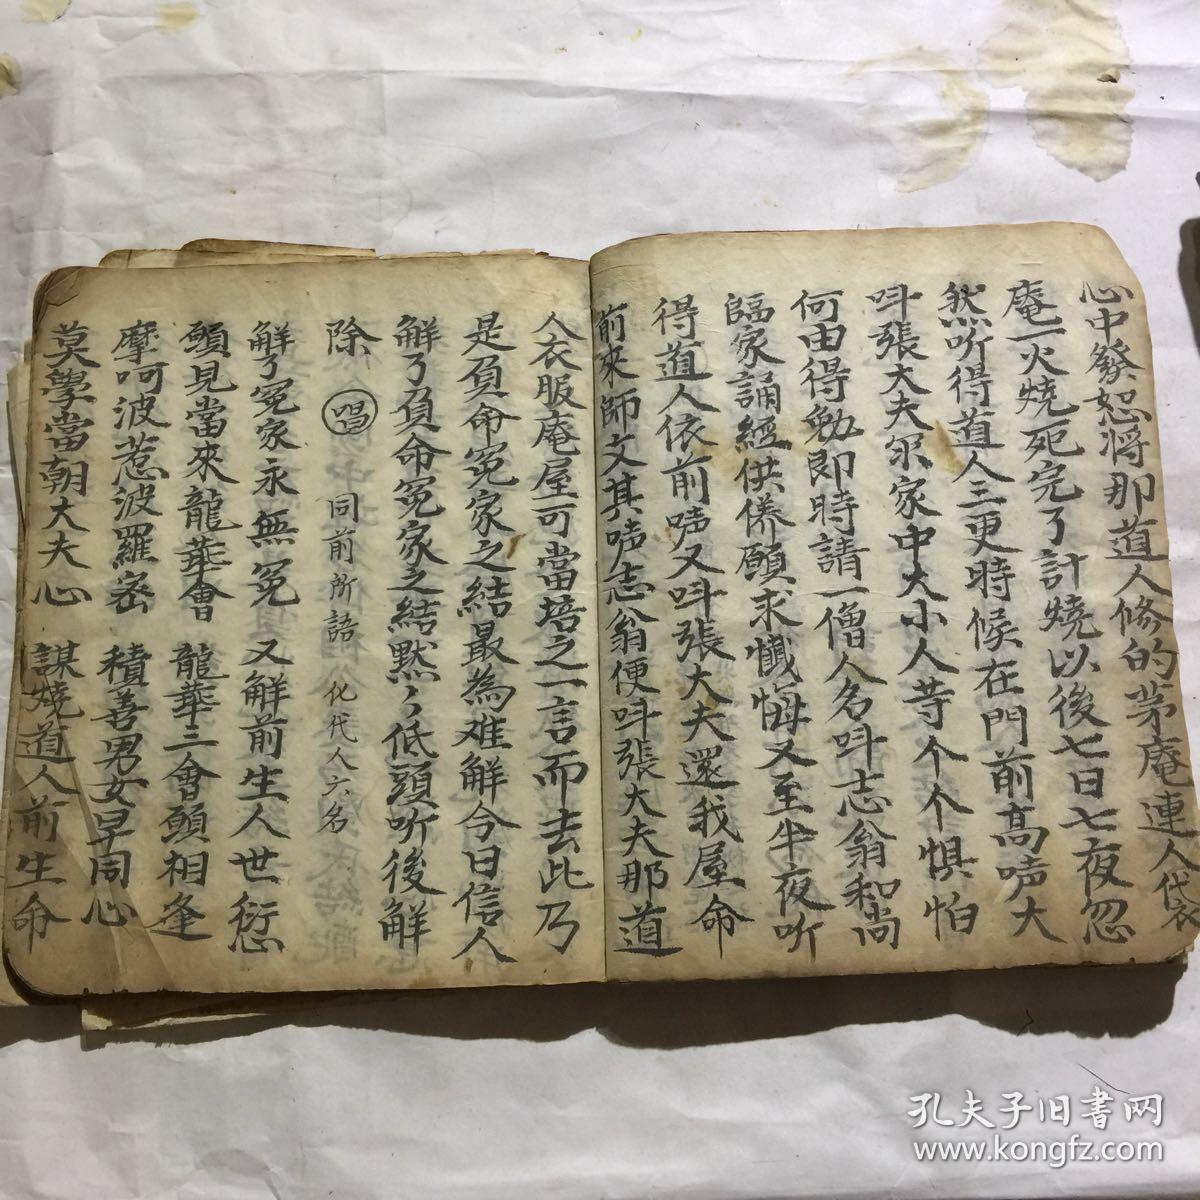 心中發恕将那道人修的茅庵連人代衣
庵一火燒死完了計燒以後七日七夜忽
然听得道人三更時候在門前髙唥大
呌張大夫尔家中大小人等个个惧怕
何由得勉即時請一僧人名呌志翁和尚
臨家誦經供养願求懺悔又至半夜听
得道人依前唥又呌張大夫還我屋命
前來師文其唥志翁便呌張大夫那道
人衣服庵屋可當培之一言而去此乃
是負命冤家之結最為难解今日信人
解了負命冤家之結黙々低頭听後解
除 唱 同前所語 化代人六名
解了冤家永無冤 又解前生人世愆
願見當來龍華會 龍華三會願相逢
摩呵波惹波羅宻 積善男女早同心
莫學當朝大夫心 謀燒道人前生命
孔夫子旧书网
www.kongfz.com